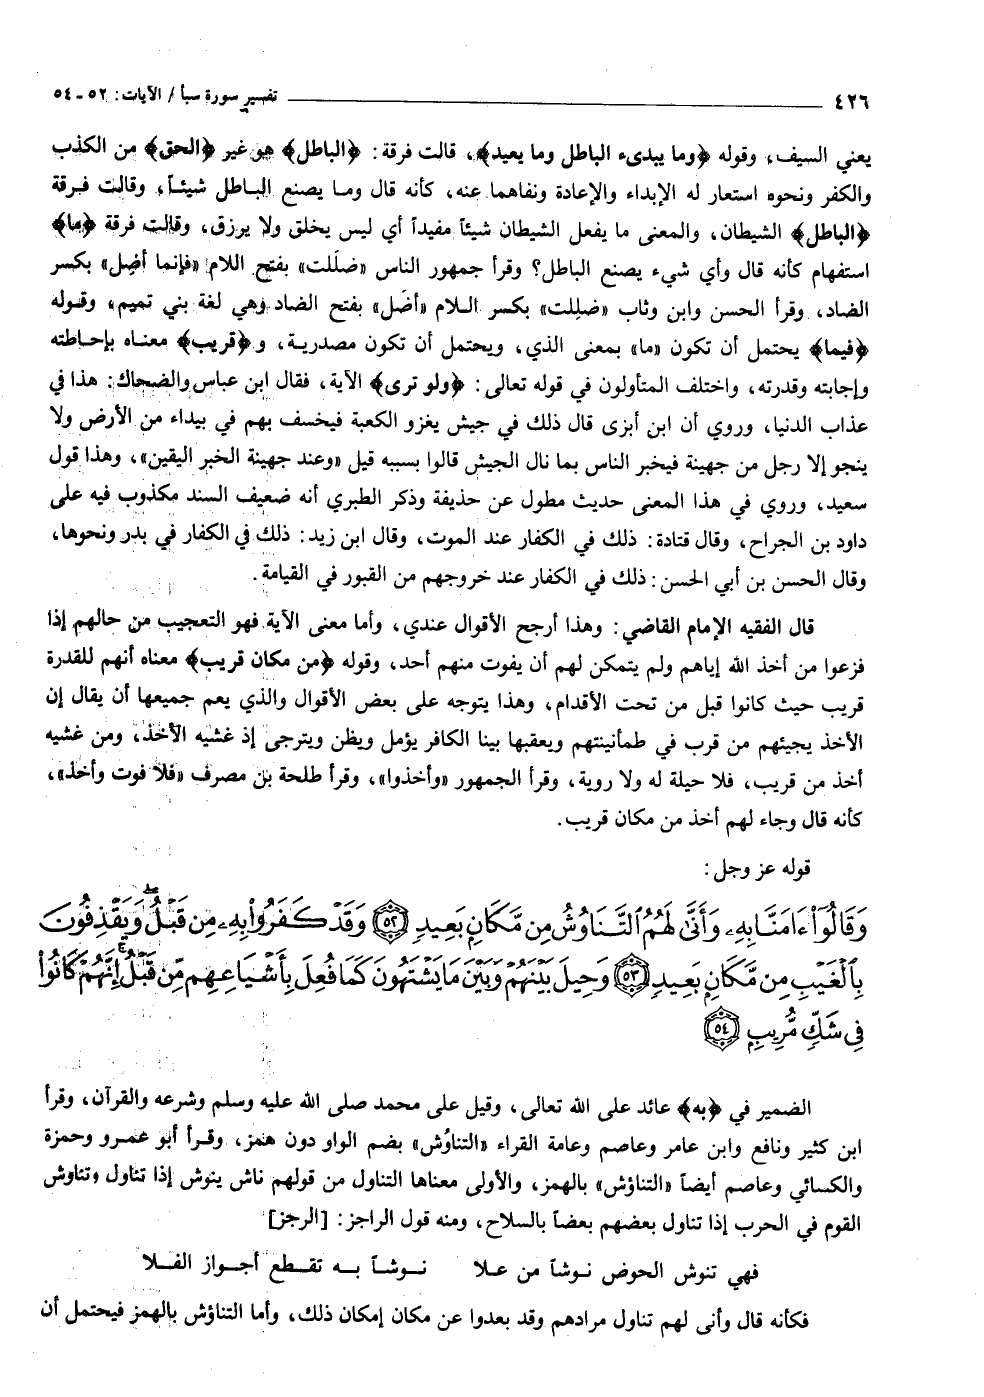 ٤٢٦ ــــــ تفسير سورة سبأ / الآيات: ٥٢ ـ ٥٤
يعني السيف، وقوله ﴿وما يبدىء الباطل وما يعيد﴾، قالت فرقة: ﴿الباطل﴾ هو غير ﴿الحق﴾ من الكذب
والكفر ونحوه استعار له الإبداء والإعادة ونفاهما عنه، كأنه قال وما يصنع الباطل شيئاً، وقالت فرقة
﴿الباطل﴾ الشيطان، والمعنى ما يفعل الشيطان شيئاً مفيداً أي ليس يخلق ولا يرزق، وقالت فرقة ﴿ما﴾
استفهام كأنه قال وأي شيء يصنع الباطل؟ وقرأ جمهور الناس «ضلَلت» بفتح اللام «فإنما أضِل» بكسر
الضاد، وقرأ الحسن وابن وثاب «ضلِلت» بكسر اللام «أضَل» بفتح الضاد وهي لغة بني تميم، وقوله
﴿فيما﴾ يحتمل أن تكون «ما» بمعنى الذي، ويحتمل أن تكون مصدرية، و﴿قريب﴾ معناه بإحاطته
وإجابته وقدرته، واختلف المتأولون في قوله تعالى: ﴿ولو ترى﴾ الآية، فقال ابن عباس والضحاك: هذا في
عذاب الدنيا، وروي أن ابن أبزى قال ذلك في جيش يغزو الكعبة فيخسف بهم في بيداء من الأرض ولا
ينجو إلا رجل من جهينة فيخبر الناس بما نال الجيش قالوا بسببه قيل «وعند جهينة الخبر اليقين»، وهذا قول
سعيد، وروي في هذا المعنى حديث مطول عن حذيفة وذكر الطبري أنه ضعيف السند مكذوب فيه على
داود بن الجراح، وقال قتادة: ذلك في الكفار عند الموت، وقال ابن زيد: ذلك في الكفار في بدر ونحوها،
وقال الحسن بن أبي الحسن: ذلك في الكفار عند خروجهم من القبور في القيامة.
قال الفقيه الإمام القاضي: وهذا أرجح الأقوال عندي، وأما معنى الآية فهو التعجيب من حالهم إذا
فزعوا من أخذ الله إياهم ولم يتمكن لهم أن يفوت منهم أحد، وقوله ﴿من مكان قريب﴾ معناه أنهم للقدرة
قريب حيث كانوا قبل من تحت الأقدام، وهذا يتوجه على بعض الأقوال والذي يعم جميعها أن يقال إن
الأخذ يجيئهم من قرب في طمأنينتهم ويعقبها بينا الكافر يؤمل ويظن ويترجى إذ غشيه الأخذ، ومن غشيه
أخذ من قريب، فلا حيلة له ولا روية، وقرأ الجمهور «وأخذوا»، وقرأ طلحة بن مصرف «فلا فوت وأخذ»،
كأنه قال وجاء لهم أخذ من مكان قريب.
قوله عز وجل:
وَقَالُوٓا۟ ءَامَنَّا بِهِۦ وَأَنَّىٰ لَهُمُ ٱلتَّنَاوُشُ مِن مَّكَانٍۭ بَعِيدٍ ٥٢ وَقَدْ كَفَرُوا۟ بِهِۦ مِن قَبْلُ وَيَقْذِفُونَ
بِٱلْغَيْبِ مِن مَّكَانٍۭ بَعِيدٍ ٥٣ وَحِيلَ بَيْنَهُمْ وَبَيْنَ مَا يَشْتَهُونَ كَمَا فُعِلَ بِأَشْيَاعِهِم مِّن قَبْلُ إِنَّهُمْ كَانُوا۟
فِى شَكٍّ مُّرِيبٍۭ ٥٤
الضمير في ﴿به﴾ عائد على الله تعالى، وقيل على محمد صلى الله عليه وسلم وشرعه والقرآن، وقرأ
ابن كثير ونافع وابن عامر وعاصم وعامة القراء «التناوُش» بضم الواو دون همز، وقرأ أبو عمرو وحمزة
والكسائي وعاصم أيضاً «التناؤش» بالهمز، والأولى معناها التناول من قولهم ناش ينوش إذا تناول وتناوش
القوم في الحرب إذا تناول بعضهم بعضاً بالسلاح، ومنه قول الراجز: [الرجز]
فهي تنوش الحوض نوشاً من علا نوشاً به تقطع أجواز الفلا
فكأنه قال وأنى لهم تناول مرادهم وقد بعدوا عن مكان إمكان ذلك، وأما التناؤش بالهمز فيحتمل أن